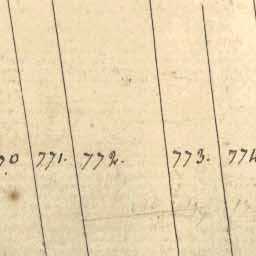 70 771. 772. 773. 774